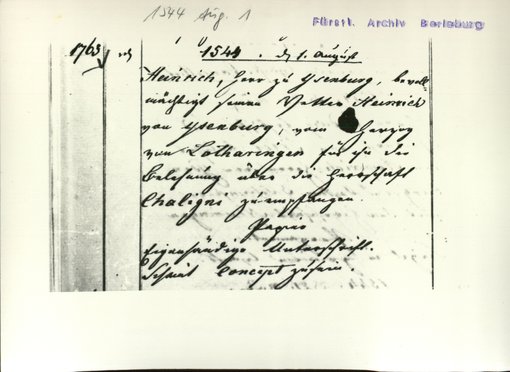 1544 Aug. 1
Fürstl. Archiv Berleburg
1763
1544. d. 1. August
Heinrich, Herr zu Ysenburg, bevoll
mächtigt seinen Vetter Heinrich
von Ysenburg, vom Herzog
von Lotharingen für ihn die
Belehnung über die Herrschaft
Chaligni zu empfangen
Papier
Eigenhändige Unterschrift.
Scheint Concept zu sein.